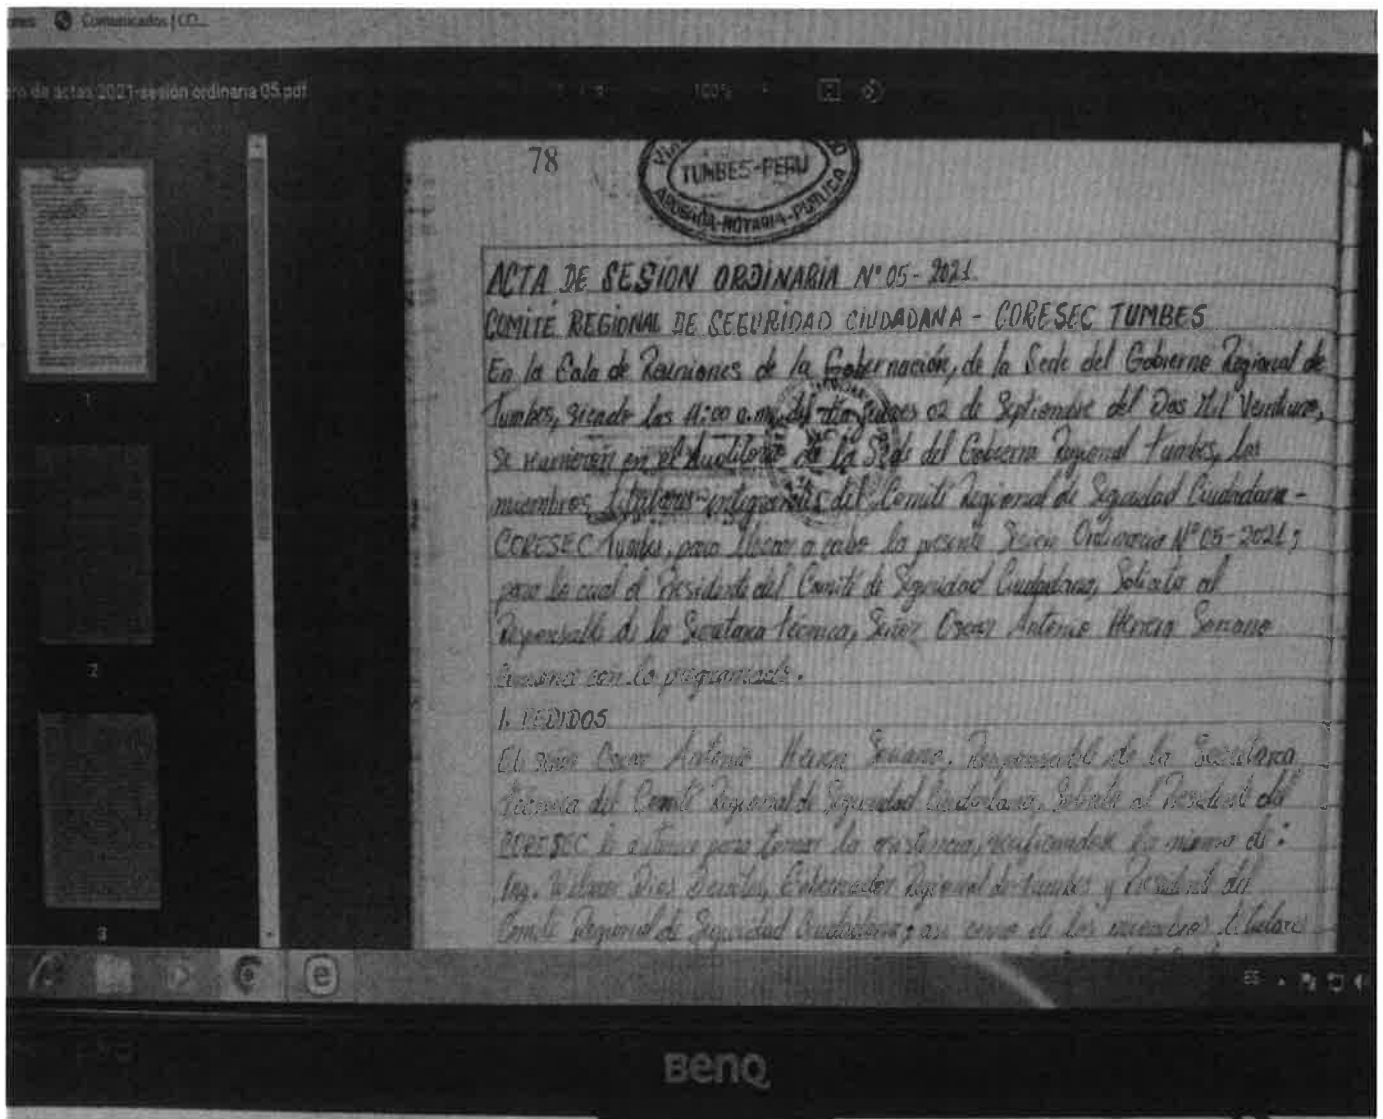 Comunicados | CO...
ro de actas 2021-sesión ordinaria 05.pdf
100%
78
TUMBES-PERU
ABOGADA-NOTARIA-PUBLICA
ACTA DE SESIÓN ORDINARIA N° 05-2021.
COMITÉ REGIONAL DE SEGURIDAD CIUDADANA - CORESEC TUMBES
En la Sala de Reuniones de la Gobernación, de la Sede del Gobierno Regional de
Tumbes, siendo las 11:00 a.m. del día jueves 02 de Septiembre del Dos Mil Veintiuno,
se reunieron en el Auditorio de la Sede del Gobierno Regional Tumbes, los
miembros titulares integrantes del Comité Regional de Seguridad Ciudadana -
CORESEC Tumbes, para llevar a cabo la presente Sesión Ordinaria N° 05-2021;
para lo cual el Presidente del Comité de Seguridad Ciudadana, Solicita al
Responsable de la Secretaria Técnica, Señor Oscar Antonio Herrera Soriano
comience con lo programado.
1. PEDIDOS
El señor Oscar Antonio Herrera Soriano, Responsable de la Secretaria
Técnica del Comité Regional de Seguridad Ciudadana, Solicita al Presidente del
CORESEC le autorice para tomar la asistencia, verificandose la misma de:
Ing. Wilmer Dios Benites, Gobernador Regional de Tumbes y Presidente del
Comité Regional de Seguridad Ciudadana; asi como de los miembros titulares
1
2
3
ES
BenQ